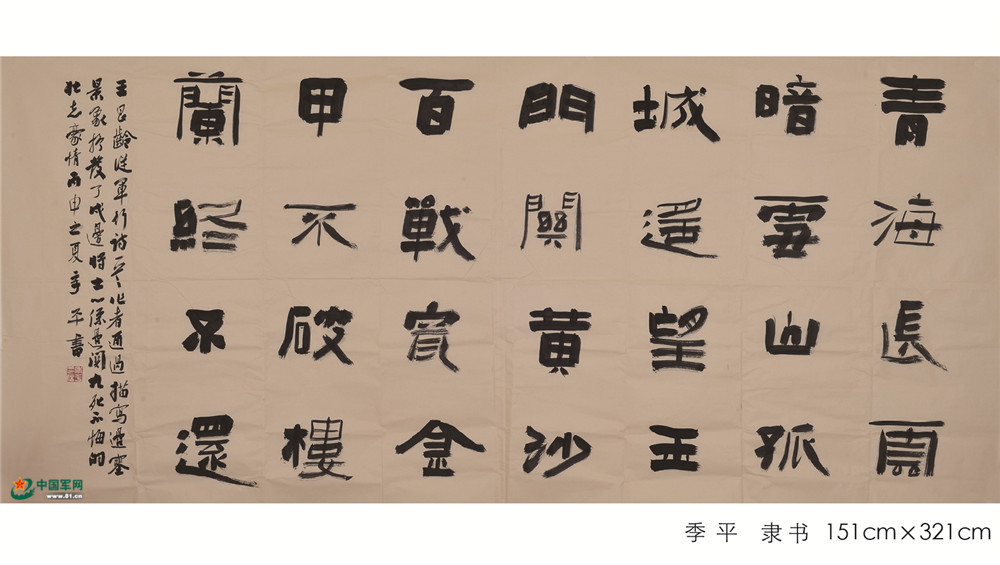 青海長雲
暗雪山孤
城遥望玉
門關黄沙
百戰穿金
甲不破樓
蘭終不還
王昌齡從軍行詩一首作者通過描寫邊塞
景象抒發了戍邊將士心係邊關九死不悔的
壯志豪情丙申之夏季平書
中国军网
www.81.cn
季平 隶书 151cm×321cm